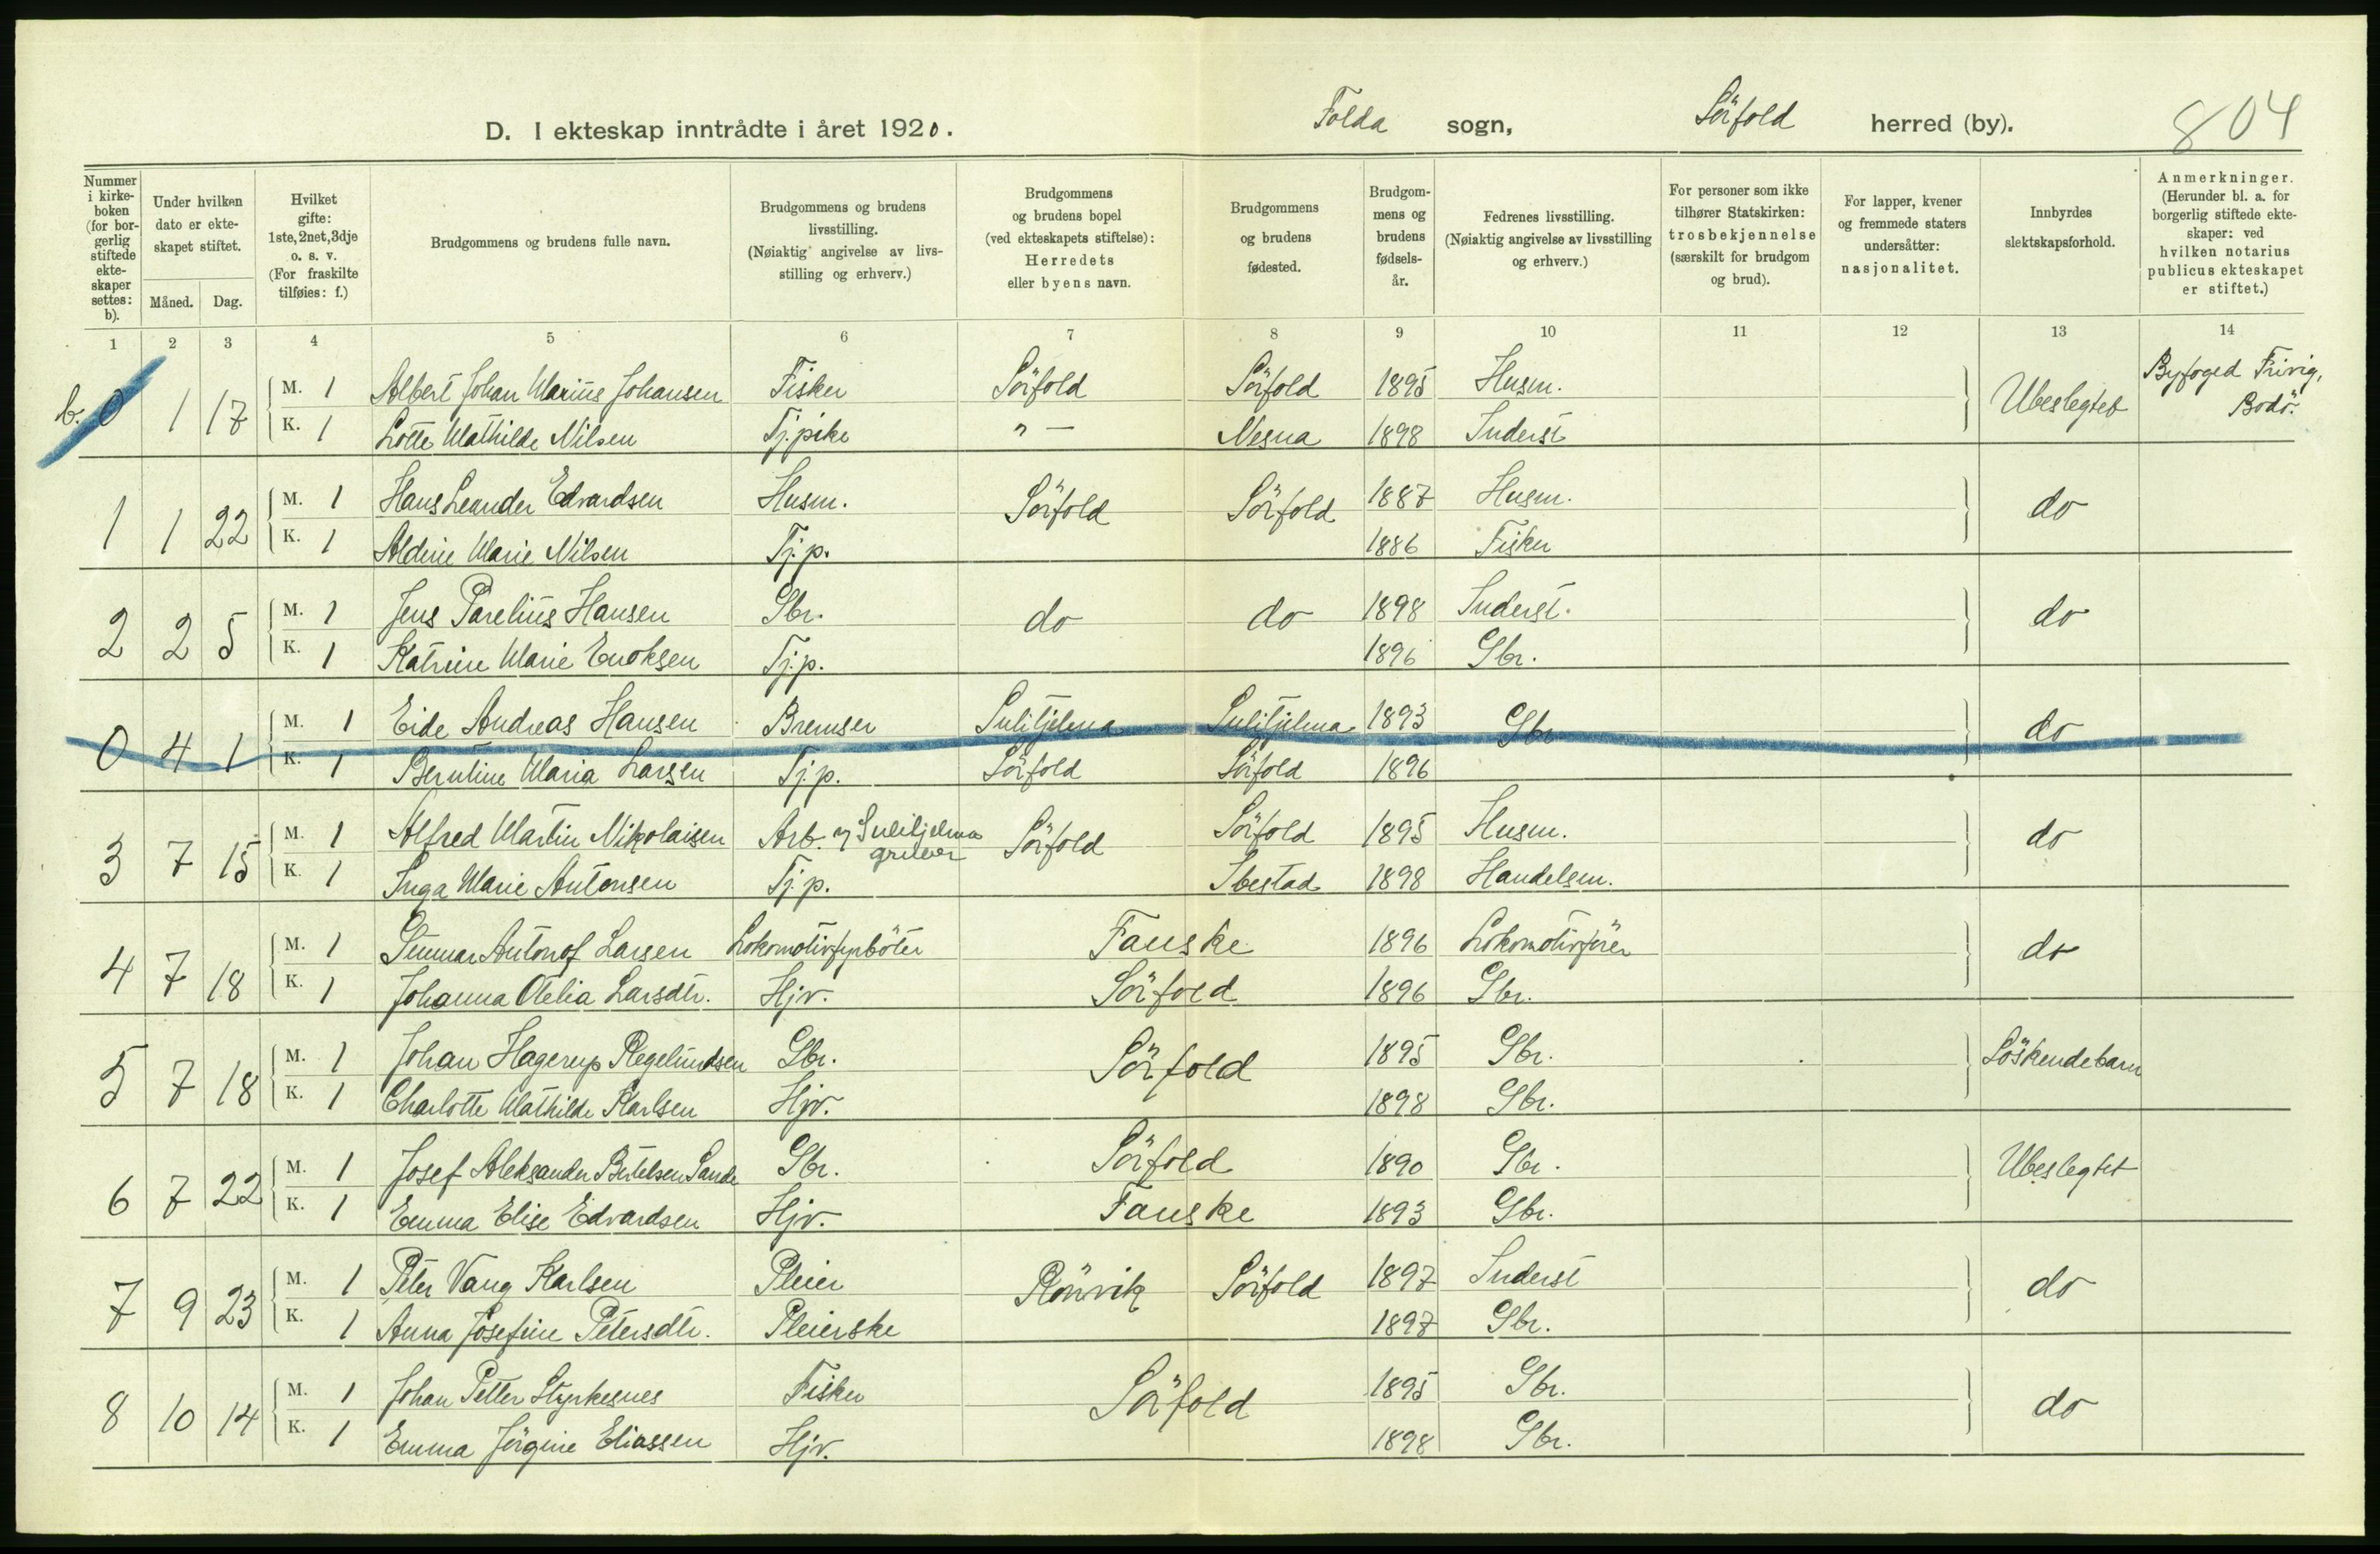 D. I ekteskap inntrådte i året 1920. Folda sogn, Sörfold herred (by). 804
Nummer i kirke- boken (for bor- gerlig stiftede ekte- skaper settes: b).
Under hvilken dato er ekte- skapet stiftet.
Måned. Dag.
Hvilket gifte: 1ste, 2net, 3dje o. s. v. (For fraskilte tilføies: f.)
Brudgommens og brudens fulle navn.
Brudgommens og brudens livsstilling. (Nøiaktig angivelse av livs- stilling og erhverv.)
Brudgommens og brudens bopel (ved ekteskapets stiftelse): Herredets eller byens navn.
Brudgommens og brudens fødested.
Brudgom- mens og brudens fødsels- år.
Fedrenes livsstilling. (Nøiaktig angivelse av livsstilling og erhverv.)
For personer som ikke tilhører Statskirken: trosbekjennelse (særskilt for brudgom og brud).
For lapper, kvener og fremmede staters undersåtter: nasjonalitet.
Innbyrdes slektskapsforhold.
Anmerkninger. (Herunder bl. a. for borgerlig stiftede ekte- skaper: ved hvilken notarius publicus ekteskapet er stiftet.)
1 2 3 4 5 6 7 8 9 10 11 12 13 14
b. 0 1 17 M. 1 Albert Johan Marius Johansen Fisker Sörfold Sörfold 1895 Husm. Ubeslegtet Byfoged Bodö.
K. 1 Lotte Mathilde Nilsen Tj.pike " — Nesna 1898 Inderst
1 1 22 M. 1 Hans Leander Edvardsen Husm. Sörfold Sörfold 1887 Husm. do
K. 1 Aldine Marie Nilsen Tj.p. 1886 Fisker
2 2 5 M. 1 Jens Parelius Hansen Gbr. do do 1898 Inderst. do
K. 1 Katrine Marie Enoksen Tj.p. 1896 Gbr.
0 4 1 M. 1 Eide Andreas Hansen Bremser Sulitjelma Sulitjelma 1893 Gbr do
K. 1 Berntine Maria Larsen Tj.p. Sörfold Sörfold 1896
3 7 15 M. 1 Alfred Martin Nikolaisen Arb. v Sulitjelma gruber Sörfold Sörfold 1895 Husm. do
K. 1 Inga Marie Antonsen Tj.p. Ibestad 1898 Handelsm.
4 7 18 M. 1 Gunnar Antonof Larsen Lokomotivfyrböter Fauske 1896 Lokomotivförer do
K. 1 Johanna Otelia Larsdtr. Hjv. Sörfold 1896 Gbr.
5 7 18 M. 1 Johan Hagerup Regelundsen Gbr. Sörfold 1895 Gbr. Söskendebarn
K. 1 Charlotte Mathilde Karlsen Hjv. 1898 Gbr.
6 7 22 M. 1 Josef Aleksander Bertelsen Sande Gbr. Sörfold 1890 Gbr. Ubeslegtet
K. 1 Emma Elise Edvardsen Hjv. Fauske 1893 Gbr.
7 9 23 M. 1 Peter Vang Karlsen Pleier Rönvik Sörfold 1897 Inderst do
K. 1 Anna Josefine Petersdtr. Pleierske 1897 Gbr.
8 10 14 M. 1 Johan Petter Styrkesnes Fisker Sörfold 1895 Gbr. do
K. 1 Emma Jörgine Eliassen Hjv. 1898 Gbr.